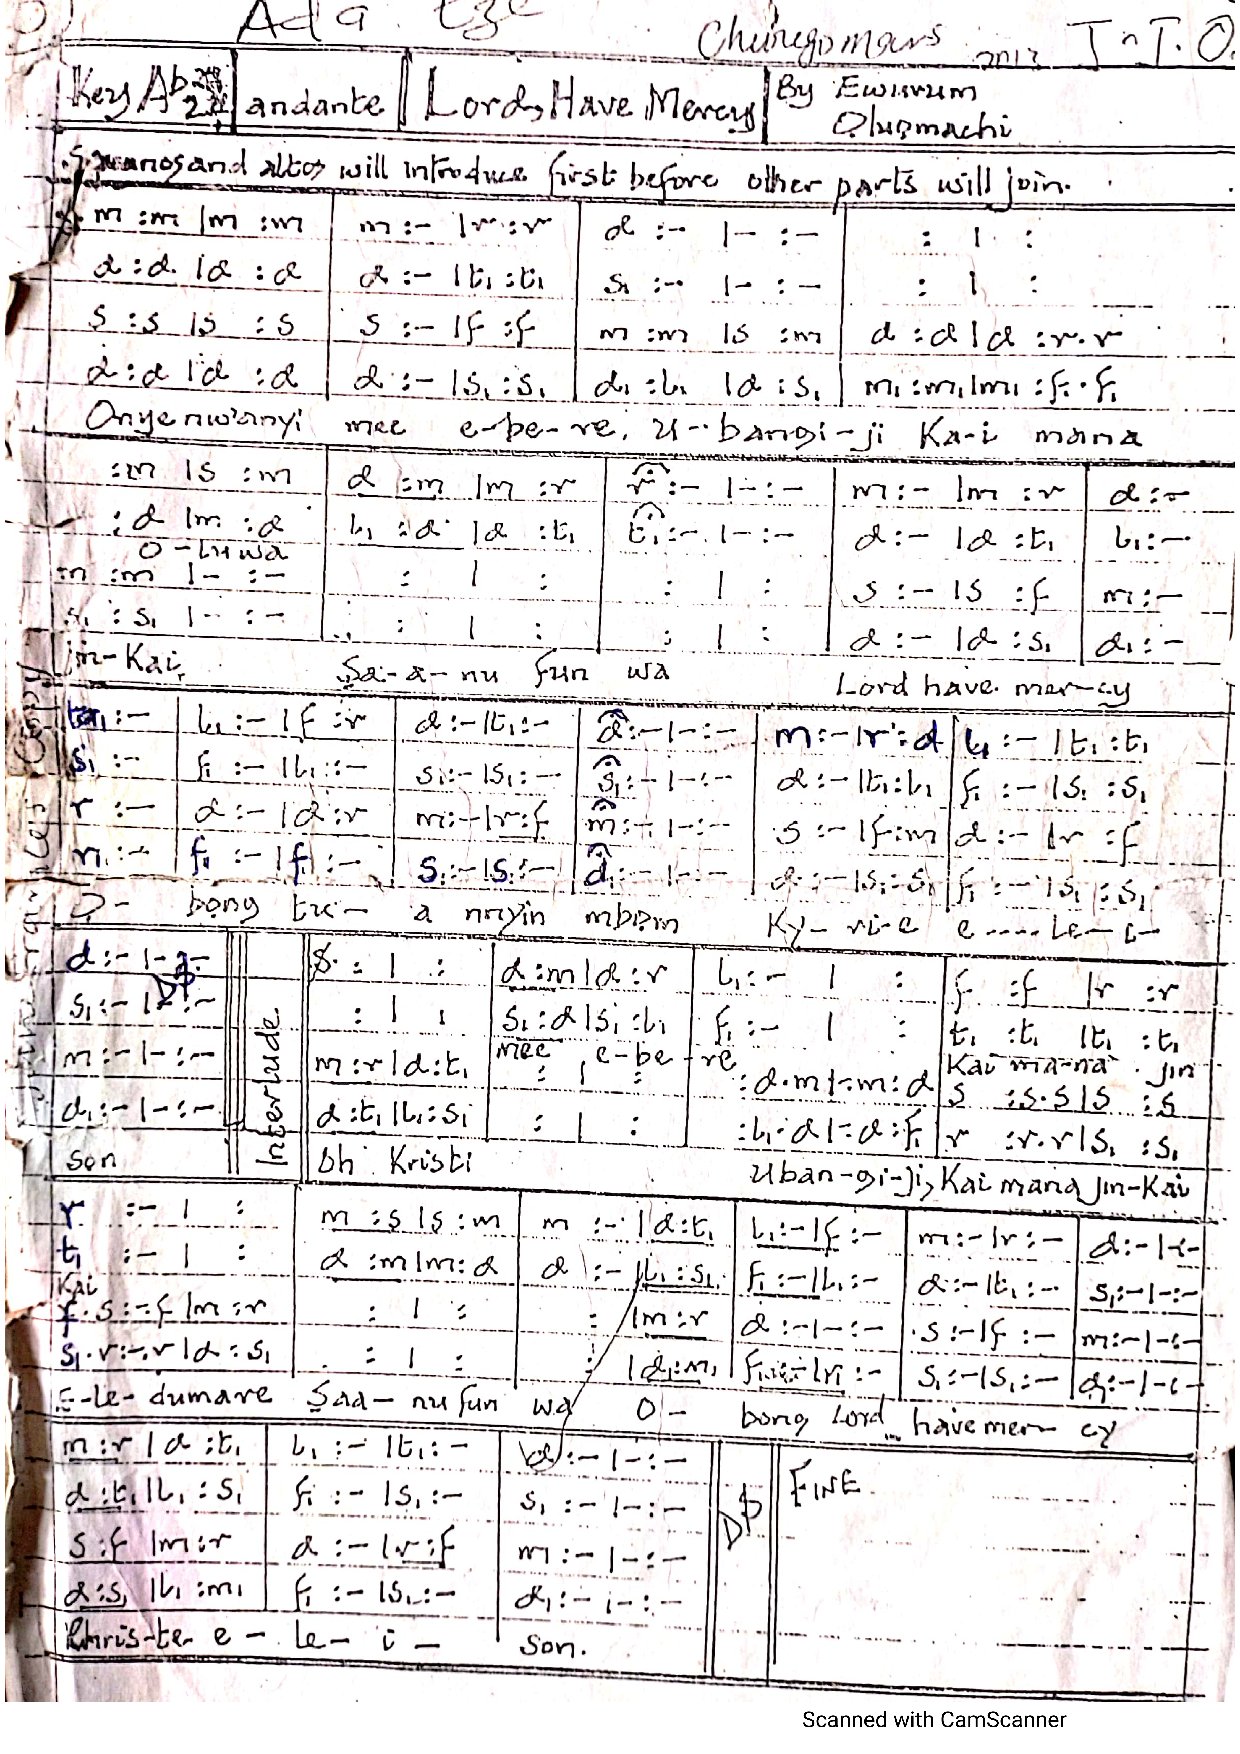 Ada Eze
Chinegomars 2013 J n J. O.
Key Ab andante Lord, Have Mercy By Ewurum
Olugmachi
Sopranos and altos will introduce first before other parts will join.
m :m |m :m m :- |r :r d :- |- :- : | :
d :d |d :d d :- |t₁ :t₁ s₁ :- |- :- : | :
s :s |s :s s :- |f :f m :m |s :m d :d |d :r.r
d :d |d :d d :- |s₁ :s₁ d₁ :l₁ |d :s₁ m₁ :m₁ |m₁ :f₁.f₁
Onye nwanyi mee e-be-re, U-bangi-ji Ka-i mana
:m |s :m d :m |m :r r :- |- :- m :- |m :r d :-
:d |m :d l₁ :d |d :t₁ t₁ :- |- :- d :- |d :t₁ l₁ :-
O-luwa
m :m |- :- : | : : | : s :- |s :f m :-
s₁ :s₁ |- :- : | : : | : d :- |d :s₁ d₁ :-
jin-Kai, Ṣa-a-nu fun wa Lord have mer-cy
:- l₁ :- |f :r d :- |t₁ :- d :- |- :- m :- |r :d l₁ :- |t₁ :t₁
s₁ :- f₁ :- |l₁ :- s₁ :- |s₁ :- s₁ :- |- :- d :- |t₁ :l₁ f₁ :- |s₁ :s₁
r :- d :- |d :r m :- |r :f m :- |- :- s :- |f :m d :- |r :f
:- f₁ :- |f₁ :- s₁ :- |s₁ :- d₁ :- |- :- d :- |s₁ :s₁ f₁ :- |s₁ :s₁
O- bong tu- a nnyin mbọm Ky-ri-e e ..... le-i-
d :- |- :- D$ Interlude $ : | : d :m |d :r l₁ :- | : f :f |r :r
s₁ :- |- :- : | : s₁ :d |s₁ :l₁ f₁ :- | : t₁ :t₁ |t₁ :t₁
mee e-be-re Kai ma-na jin
m :- |- :- m :r |d :t₁ : | : :d.m |-.m :d s :s.s |s :s
d₁ :- |- :- d :t₁ |l₁ :s₁ : | : :l₁.d |-.d :f₁ r :r.r |s₁ :s₁
son Oh Kristi Uban-gi-ji, Kai mana jin-Kai
r :- | : m :s |s :m m :- |d :t₁ l₁ :- |f :- m :- |r :- d :- |- :-
t₁ :- | : d :m |m :d d :- |l₁ :s₁ f₁ :- |l₁ :- d :- |t₁ :- s₁ :- |- :-
Kai
f.s :-.f |m :r : | : : |m :r d :- |- :- s :- |f :- m :- |- :-
s₁.r :-.r |d :s₁ : | : : |d₁ :m₁ f₁ :- | :- s₁ :- |s₁ :- d₁ :- |- :-
E-le-dumare Ṣaa-nu fun wa O- bong Lord have mer-cy
m :r |d :t₁ l₁ :- |t₁ :- d :- |- :- D$ FINE
d :t₁ |l₁ :s₁ f₁ :- |s₁ :- s₁ :- |- :-
s :f |m :r d :- |r :f m :- |- :-
d :s₁ |l₁ :m₁ f₁ :- |s₁ :- d₁ :- |- :-
Chris-te e-le-i- son.
Scanned with CamScanner